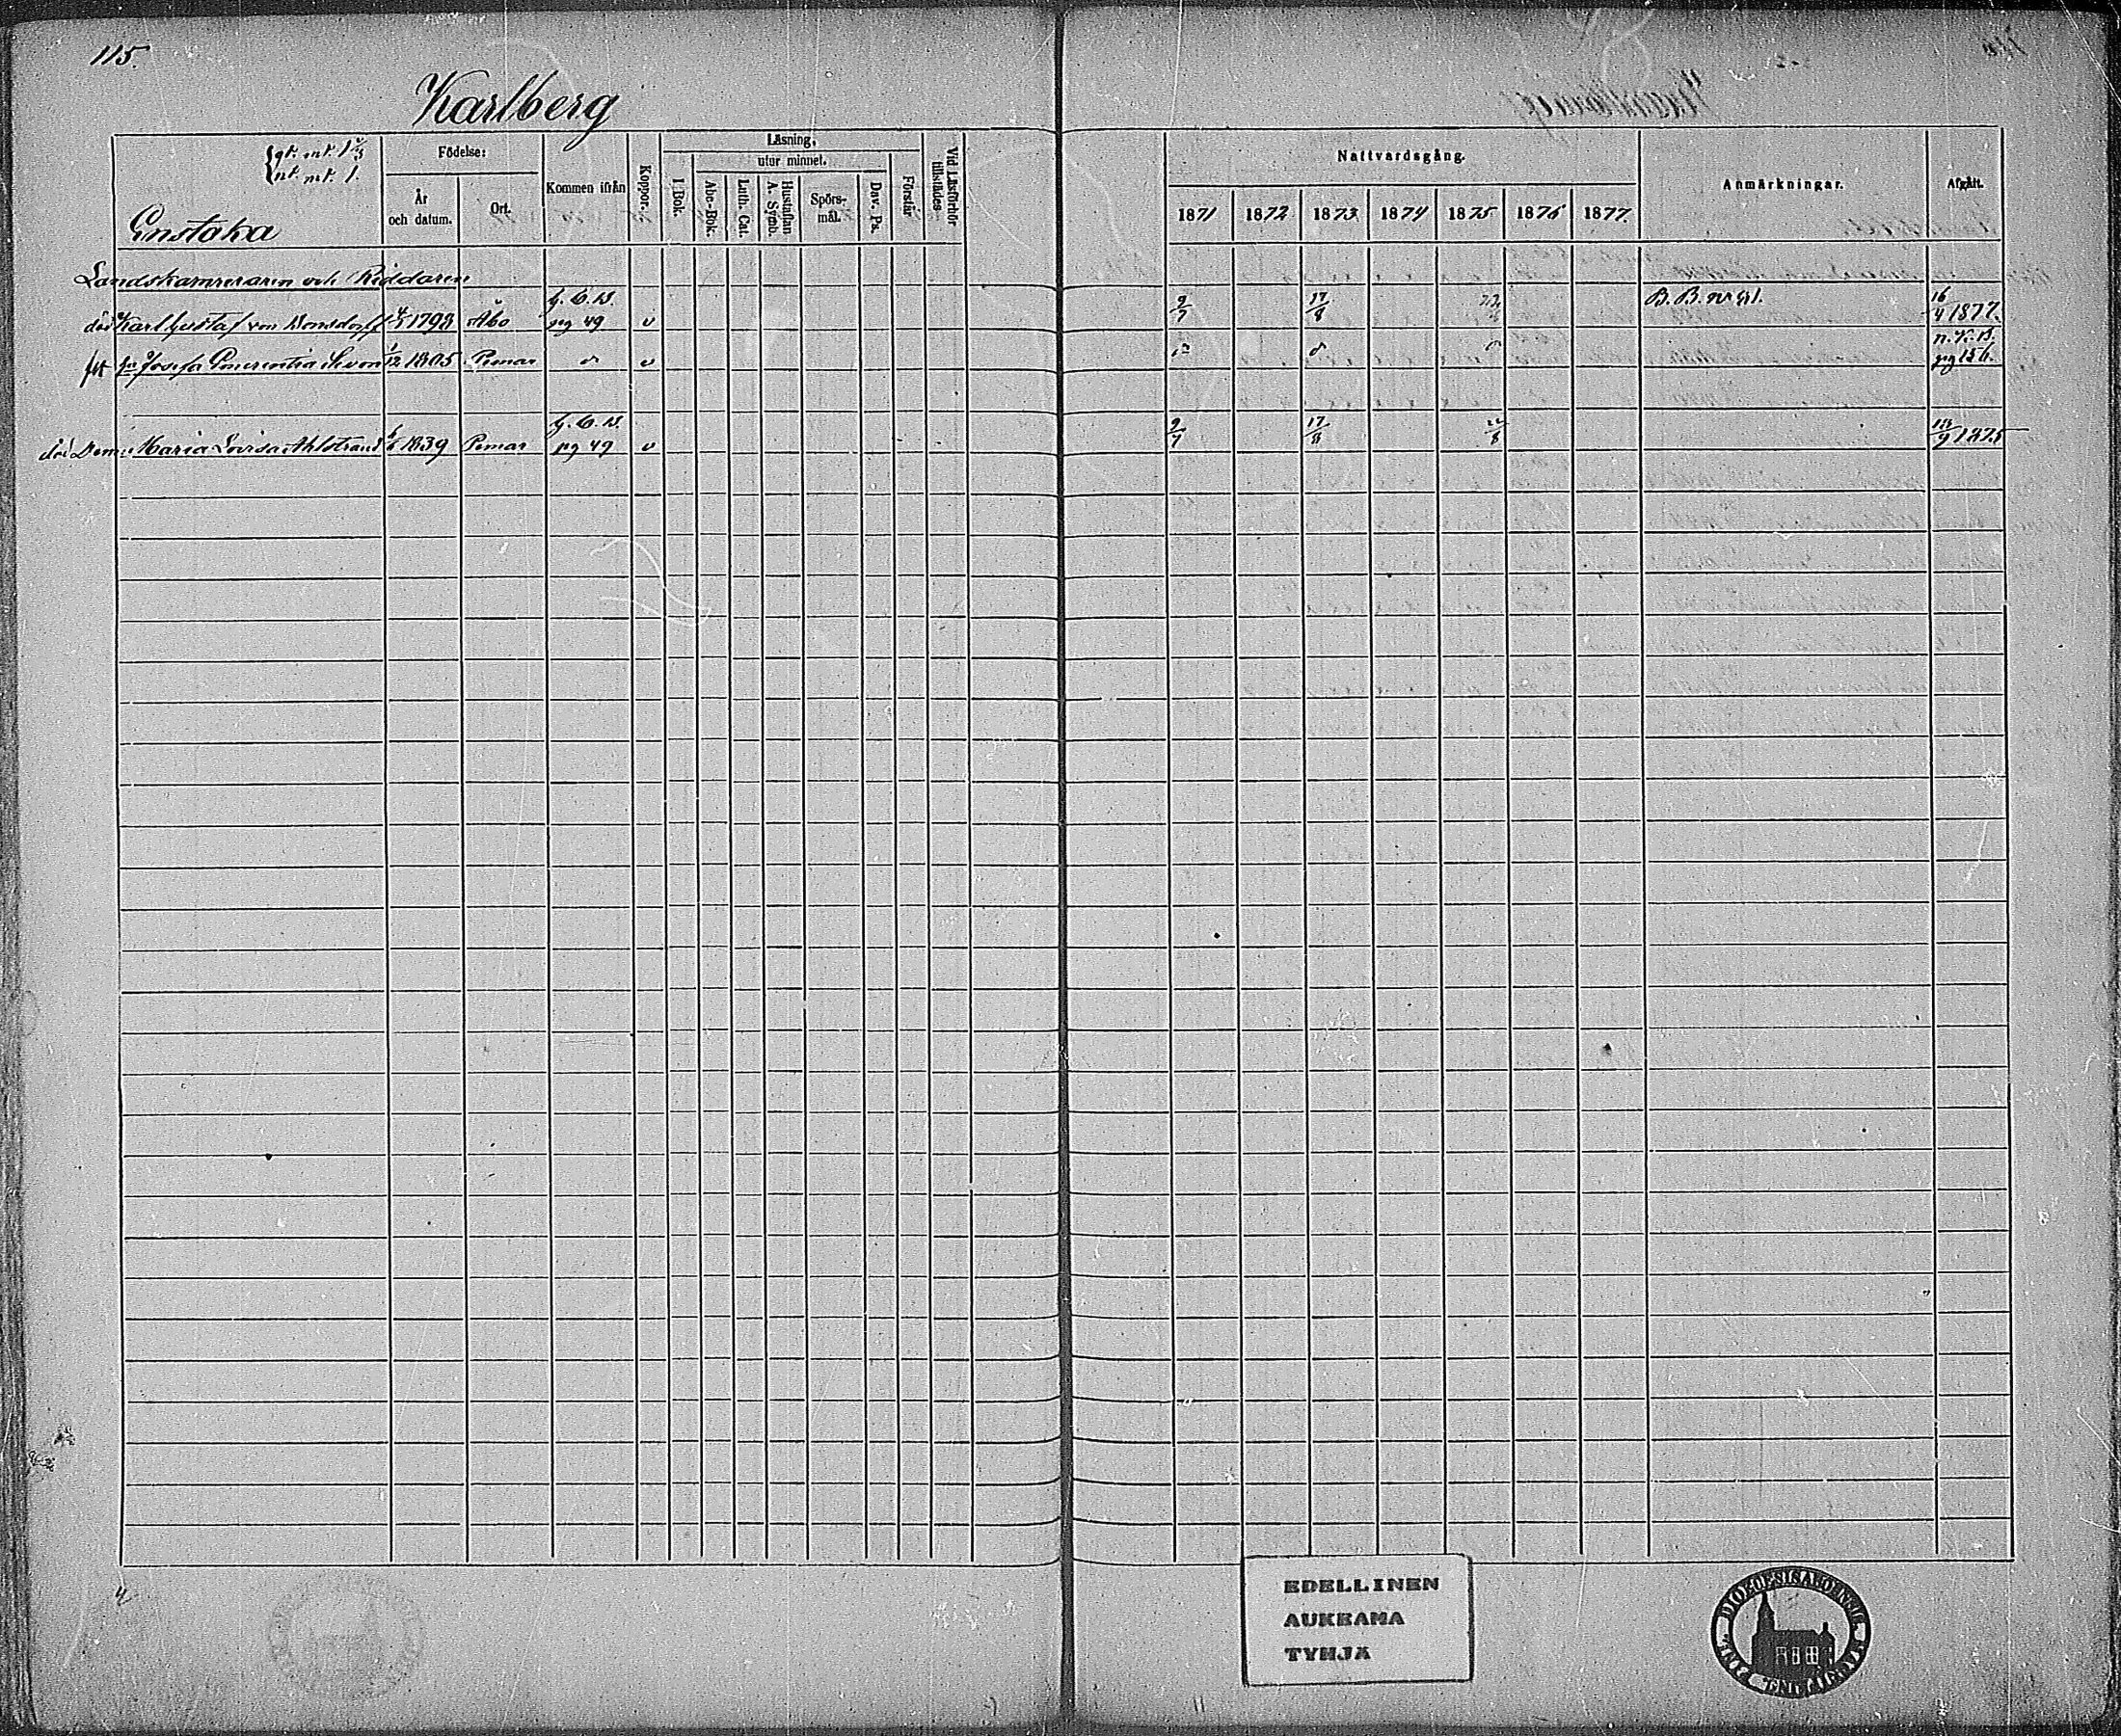 115.
Karlberg
gt. mt. 1 2/3
nt. mt. 1.
Enstaka
Födelse:
År och datum.
Ort.
Kommen ifrån
Koppor.
Läsning,
utur minnet.
I Bok.
Abc-Bok.
Luth. Cat.
Hustaflan A. Symb.
Spörsmål.
Dav. Ps.
Förstår
Vid Läsförhör tillstädes
Nattvardsgång.
1871 1872 1873 1874 1875 1876 1877.
Anmärkningar.
Afgått.
Landskamreraren och Riddaren
död Karl Gustaf von Bonsdorff 4/1 1798 Åbo G. C. B. pg 49 v 9/7 17/8 B. B. 16/4 1877.
fru Josefa Emerentia 1/12 1805 Pemar v n. K. B. pg 156.
död Dem: Maria Lovisa Ahlstrand 1839 Pemar G. C. B. pg 49 v 9/7 17/8 22/8 1875
EDELLINEN
AUKEAMA
TYHJÄ